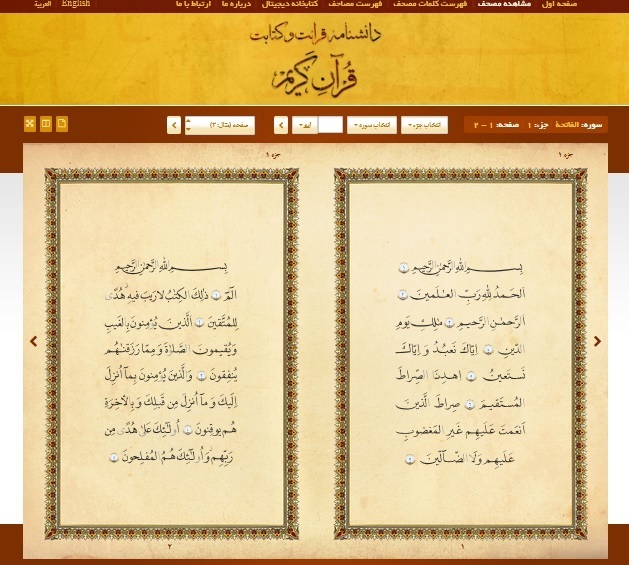 صفحه اول مشاهده مصحف فهرست کلمات مصحف فهرست مصاحف کتابخانه دیجیتال درباره ما ارتباط با ما English العربية
دانشنامه قرائت و کتابت
قرآن کریم
سوره: الفاتحة جزء: ۱ صفحه: ۱ - ۲ انتخاب جزء انتخاب سوره آیه صفحه (مثال: ۳)
جزء ۱
بِسمِ اللهِ الرَّحمٰنِ الرَّحیمِ ۱
اَلحَمدُ لِلّهِ رَبِّ العٰلَمینَ ۲
اَلرَّحمٰنِ الرَّحیمِ ۳ مٰلِکِ یَومِ
الدّینِ ۴ اِیّاکَ نَعبُدُ وَ اِیّاکَ
نَستَعینُ ۵ اِهدِنَا الصِّراطَ
المُستَقیمَ ۶ صِراطَ الَّذینَ
اَنعَمتَ عَلَیهِم غَیرِ المَغضوبِ
عَلَیهِم وَلَا الضّآلّینَ ۷
۱
جزء ۱
بِسمِ اللهِ الرَّحمٰنِ الرَّحیمِ
الٓمٓ ۱ ذٰلِکَ الکِتٰبُ لا رَیبَ فیهِ هُدًی
لِلمُتَّقینَ ۲ اَلَّذینَ یُؤمِنونَ بِالغَیبِ
وَ یُقیمونَ الصَّلاةَ وَ مِمّا رَزَقنٰهُم
یُنفِقونَ ۳ وَ الَّذینَ یُؤمِنونَ بِمآ اُنزِلَ
اِلَیکَ وَ مآ اُنزِلَ مِن قَبلِکَ وَ بِالآخِرَةِ
هُم یوقِنونَ ۴ اُولٰئِکَ عَلیٰ هُدًی مِن
رَبِّهِم وَ اُولٰئِکَ هُمُ المُفلِحونَ ۵
۲